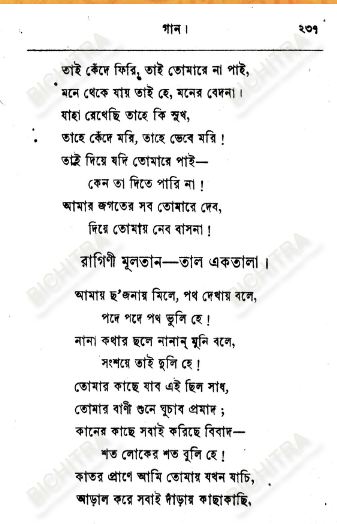 গান।
২৩৭
তাই কেঁদে ফিরি, তাই তোমারে না পাই,
মনে থেকে যায় তাই হে, মনের বেদনা।
যাহা রেখেছি তাহে কি সুখ,
তাহে কেঁদে মরি, তাহে ভেবে মরি!
তাই দিয়ে যদি তোমারে পাই—
কেন তা দিতে পারি না!
আমার জগতের সব তোমারে দেব,
দিয়ে তোমায় নেব বাসনা!
রাগিণী মূলতান—তাল একতালা।
আমায় ছ'জনায় মিলে, পথ দেখায় বলে,
পদে পদে পথ ভুলি হে!
নানা কথার ছলে নানান্ মুনি বলে,
সংশয়ে তাই দুলি হে!
তোমার কাছে যাব এই ছিল সাধ,
তোমার বাণী শুনে ঘুচাব প্রমাদ;
কানের কাছে সবাই করিছে বিবাদ—
শত লোকের শত বুলি হে!
কাতর প্রাণে আমি তোমায় যখন যাচি,
আড়াল করে সবাই দাঁড়ায় কাছাকাছি,
BICHITRA
BICHITRA
BICHITRA
BICHITRA
BICHITRA
BICHITRA